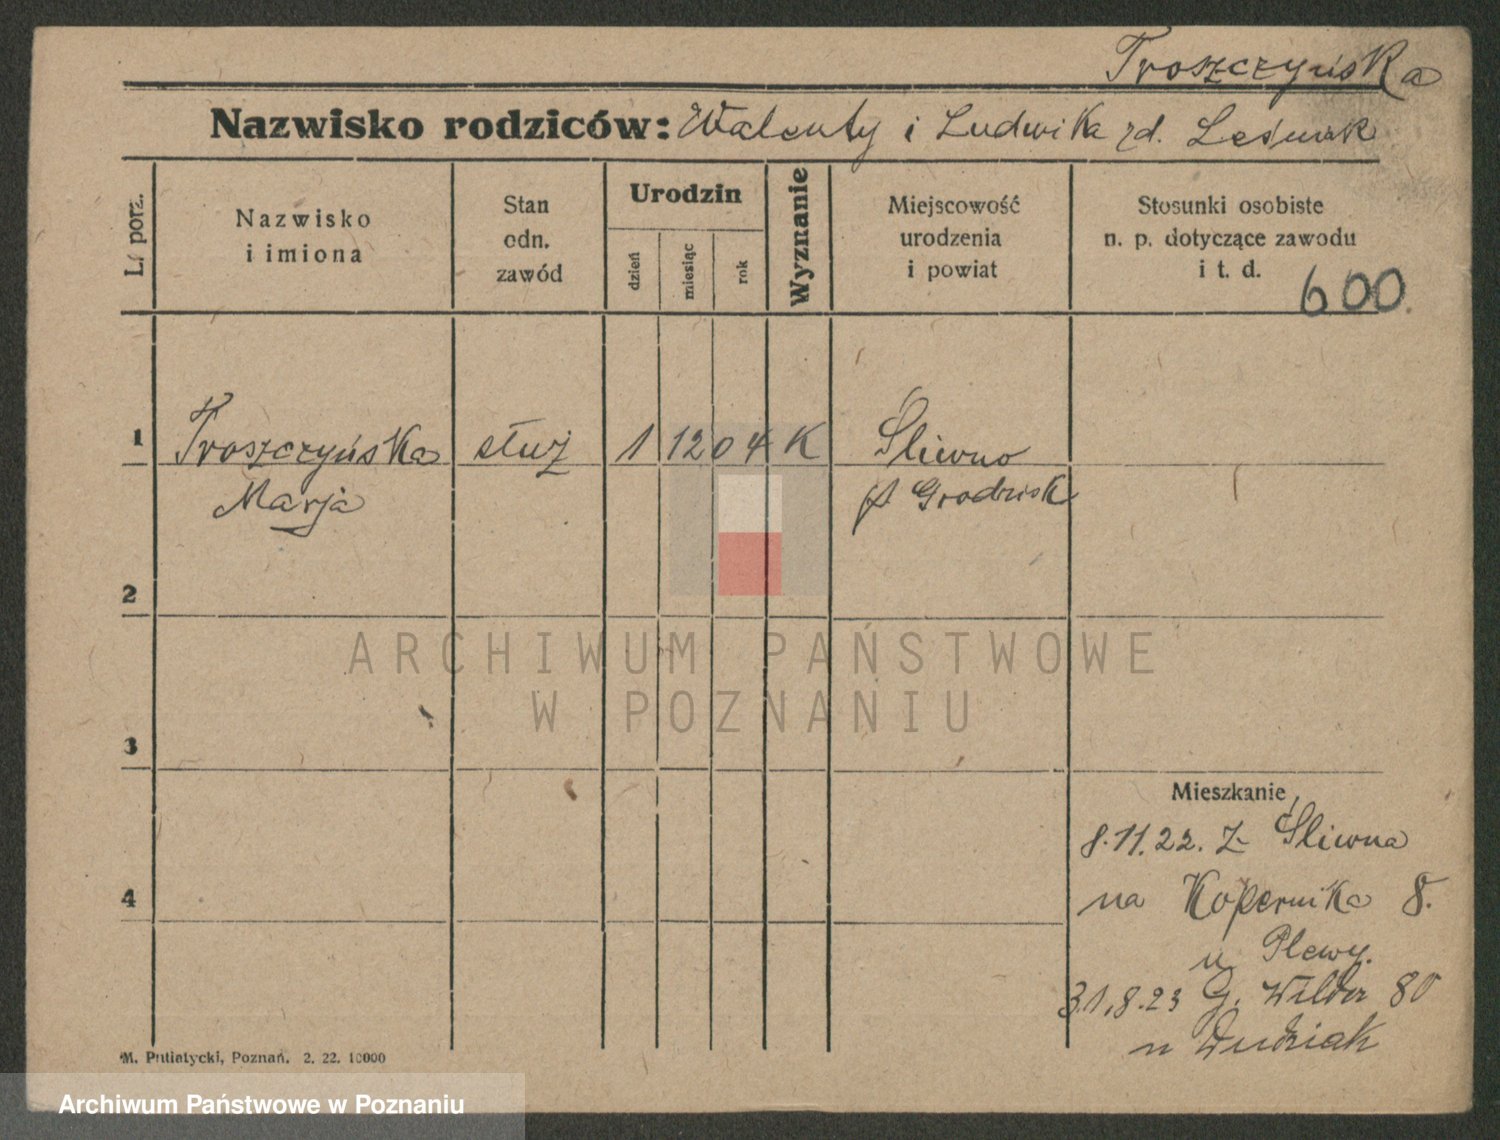 Troszczyńska
Nazwisko rodziców: Walenty i Ludwika zd. Leśniak
L. porz.
Nazwisko
i imiona
Stan
odn.
zawód
Urodzin
dzień
miesiąc
rok
Wyznanie
Miejscowość
urodzenia
i powiat
Stosunki osobiste
n. p. dotyczące zawodu
i t. d.
600.
1 Troszczyńska służ 1 12 04 K Śliwno
Marja p Grodzisk
2
3
4
Mieszkanie
8.11.22. z Śliwna
na Kopernika 8.
u Plewy.
31.8.23 G. Wilda 80
u Dudziak
M. Putiatycki, Poznań. 2. 22. 10000
ARCHIWUM PAŃSTWOWE
W POZNANIU
Archiwum Państwowe w Poznaniu